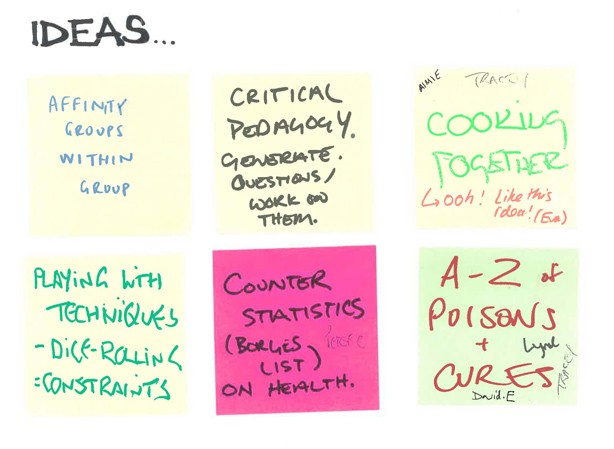 IDEAS...
AFFINITY
GROUPS
WITHIN
GROUP
CRITICAL
PEDAGOGY.
GENERATE.
QUESTIONS/
WORK ON
THEM.
AIMIE
TRACEY
COOKING
TOGETHER
↳ooh! Like this
idea! (Eva)
PLAYING WITH
TECHNIQUES
- DICE-ROLLING
= CONSTRAINTS
COUNTER
STATISTICS
(BORGES
LIST)
ON HEALTH.
A-Z of
POISONS
+
CURES
TRACEY
David.E